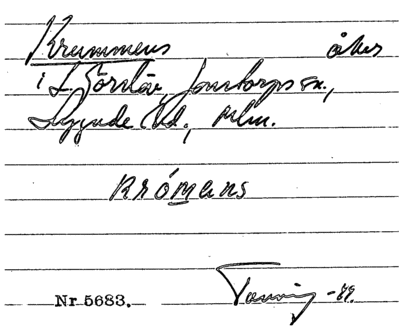 Krummens åker
i L. Görslöv, Jonstorps sn.,
Luggude hd., Mlm.
Krómens
Nr 5683.